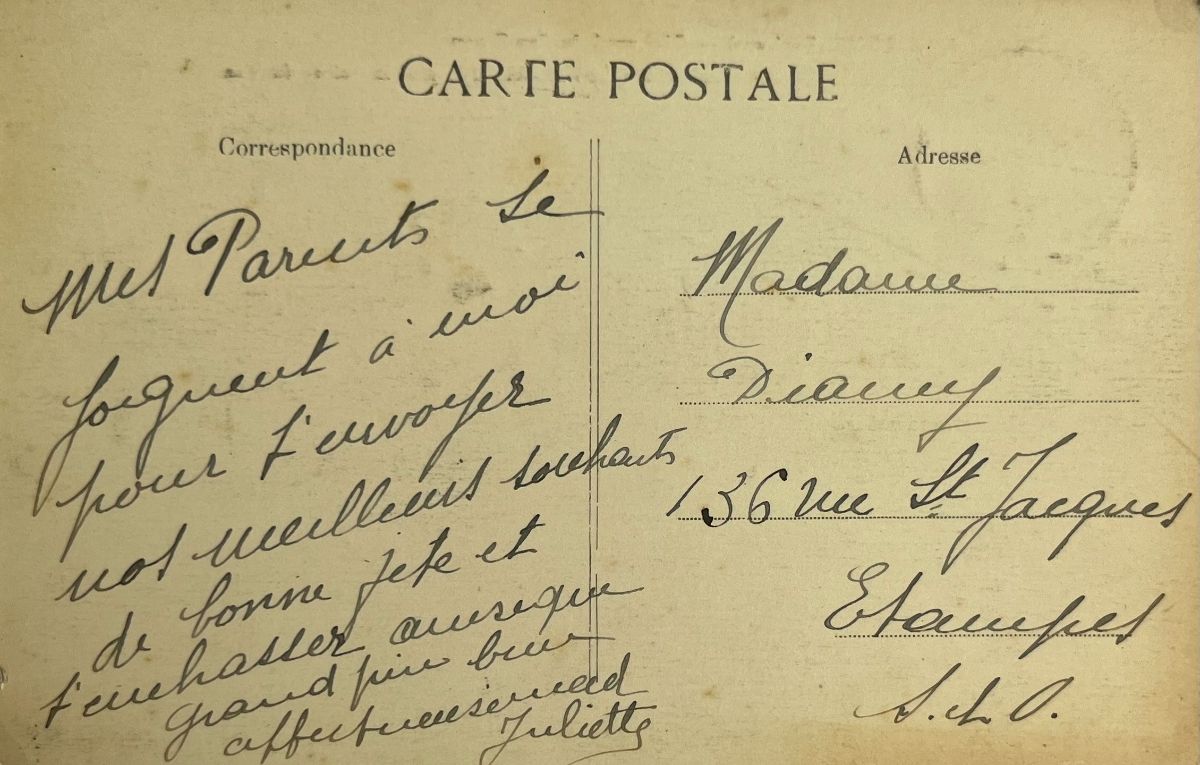 CARTE POSTALE
Correspondance
Adresse
Mes Parents se
joignent à moi
pour t'envoyer
nos meilleurs souhaits
de bonne fete et
t'embrasser ainsi que
grand père bien
affectueusement
Juliette
Madame
136 rue St. Jacques
Etampes
S. et O.